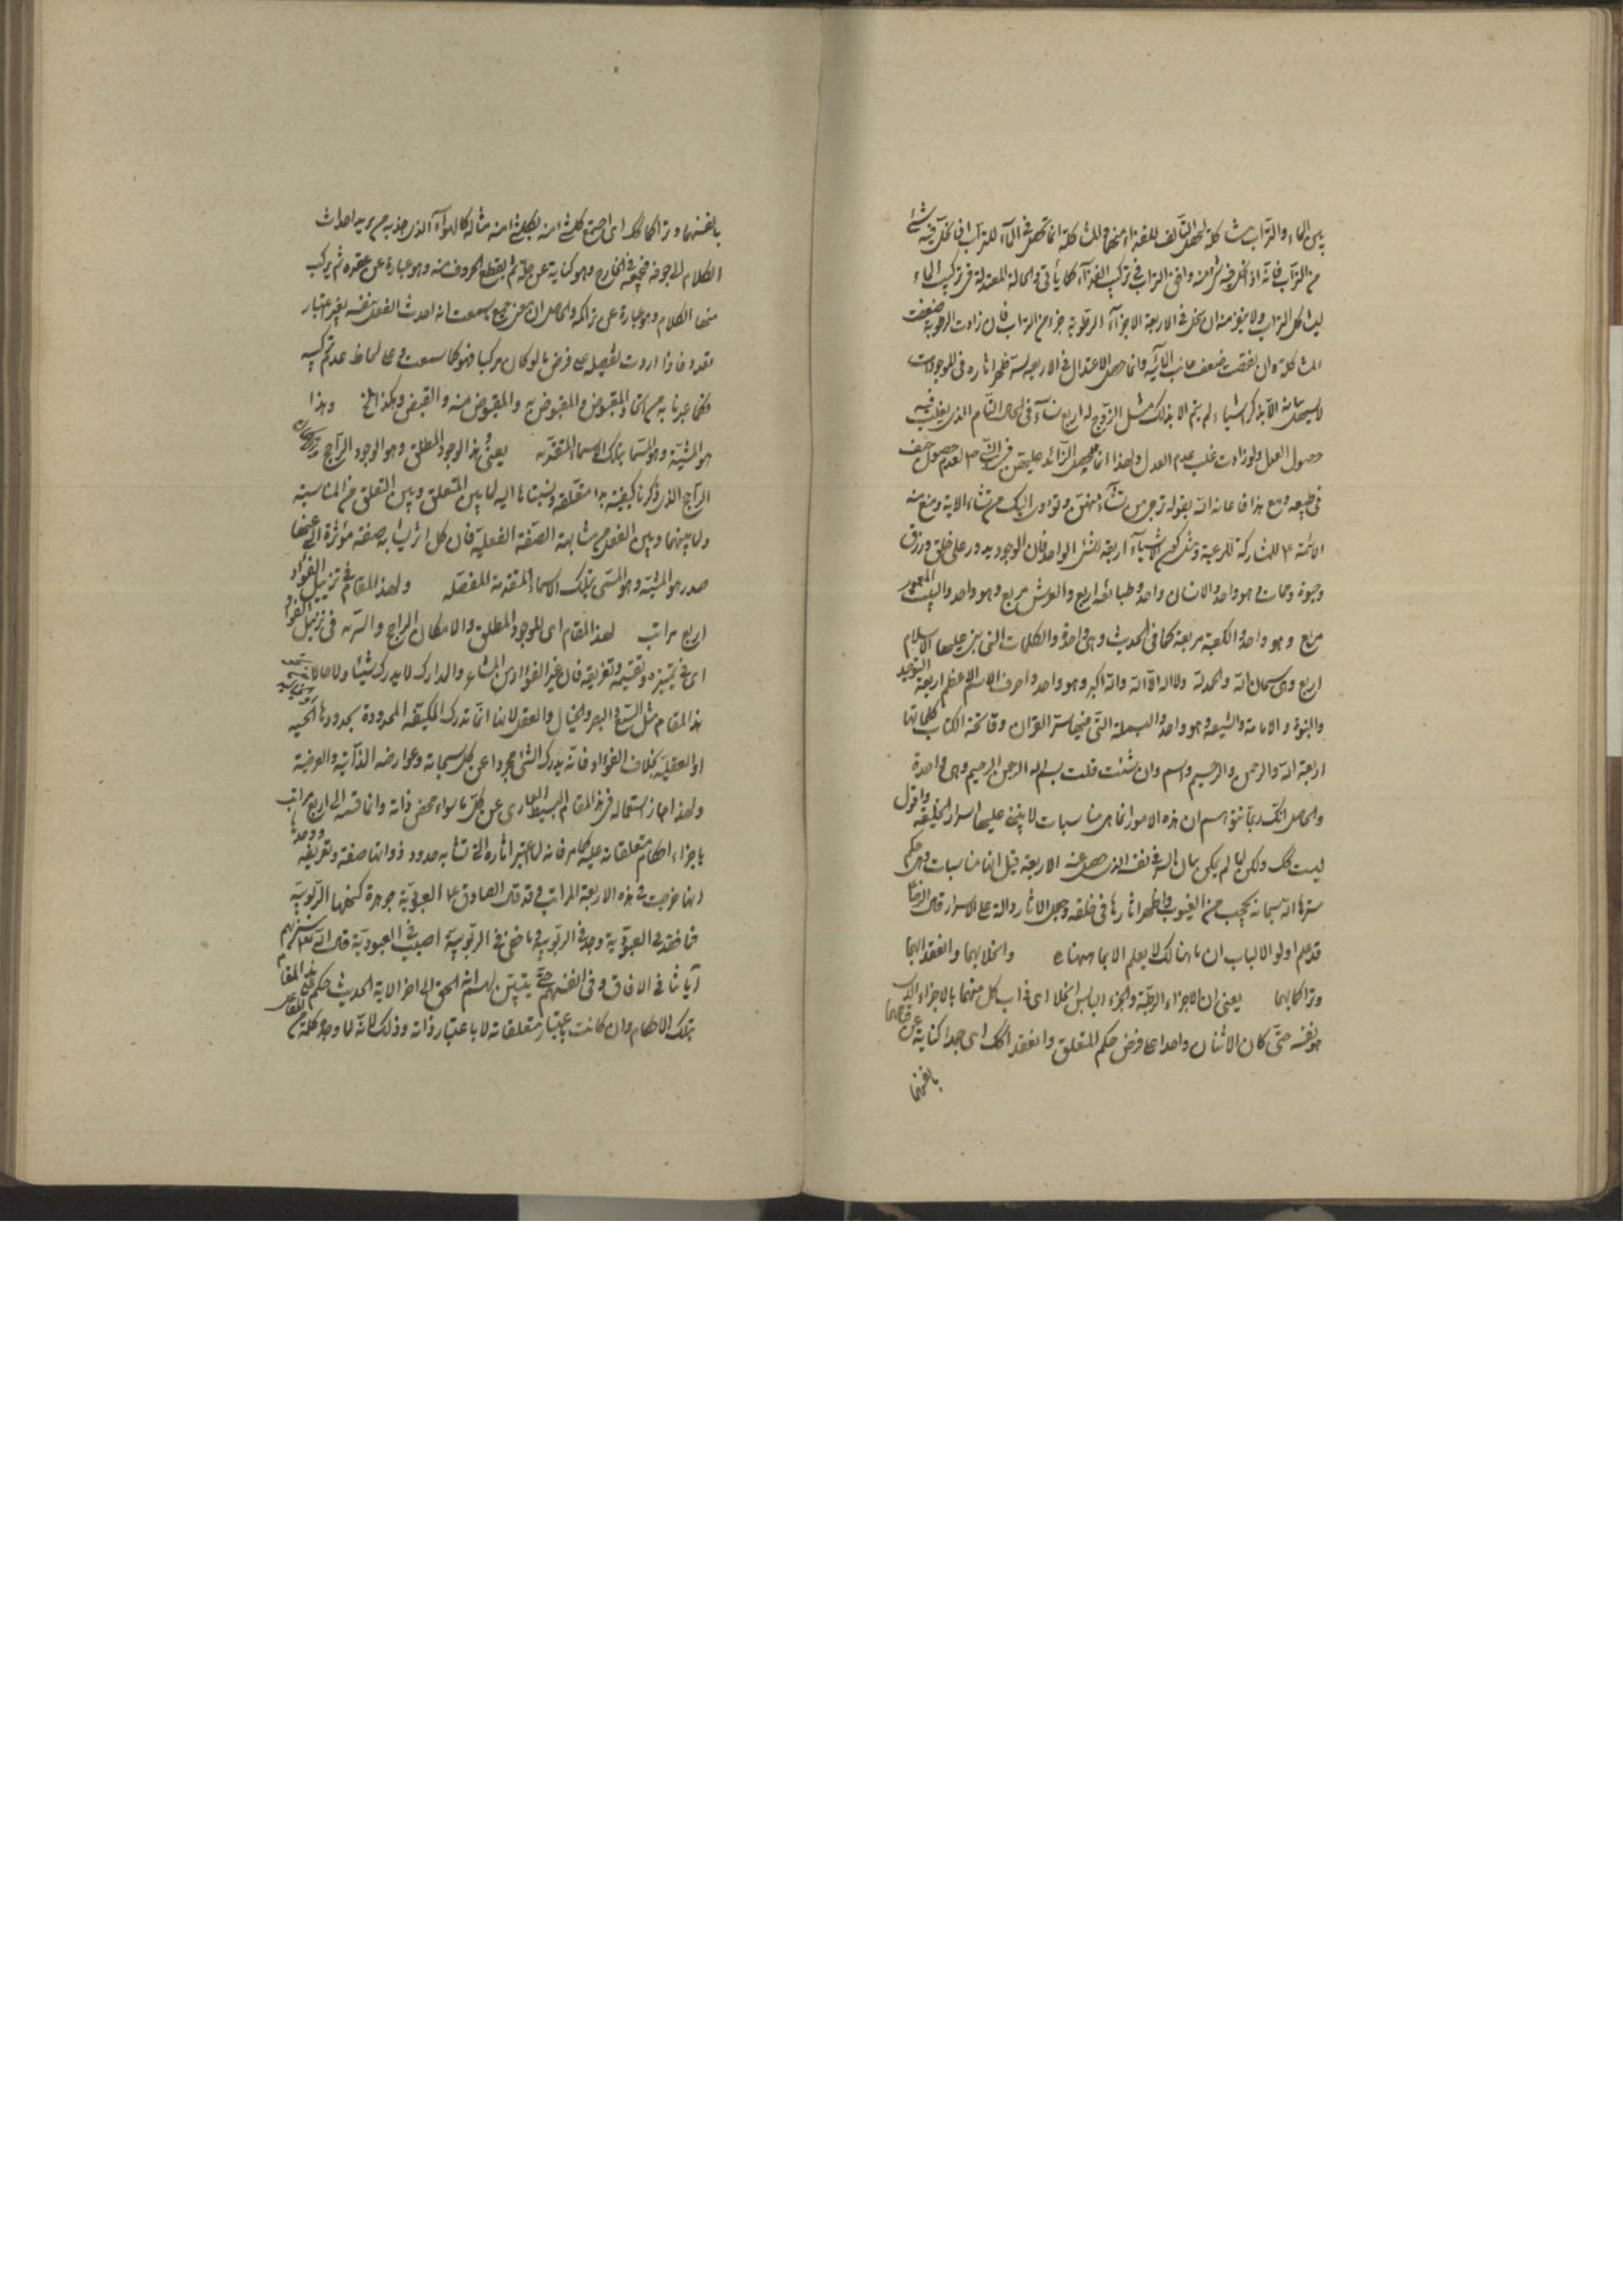 بين الماء والتراب مشاكلة ليحصل التآلف للغذاء منهما والمشاكلة انما تحصل في الماء للتراب اذا انحل فيه شئ
من التراب فانه اذا انحل فيه شئ منه وافق التراب في تركيب الغذاء كما يأتي والحالة المعتدلة في تركيب الماء
ليشاكل التراب ولا ينفر منه ان ينحل في الاربعة الاجزاء الرطوبة جزء من التراب فان زادت الرطوبة ضعفت
المشاكلة وان نقصت ضعف جانب المائية وانما حصل الاعتدال في الاربعة لسر ظهر اثاره في الموجودات
حصول العدل ولو زادت غلب عدم العدل ولهذا انما يحصل الزائد عليهن
في طبيعه ومع هذا فاعانه الله بقوله ترجي من تشاء منهن وتؤوى اليك من تشاء الاية ومنع منه
الائمة للمشاركة للرعية ومثل كون الاشياء اربعة للشئ الواحد فان الوجود يدور على خلق ورزق
وحيوة وممات وهو واحد والانسان واحد وطبائعه اربع والعرش مربع وهو واحد والبيت المعمور
مربع وهو واحد والكعبة مربعة كما في الحديث وهي واحدة والكلمات التي بني عليها الاسلام
اربع وهي سبحان الله والحمد لله ولا اله الا الله والله اكبر وهو واحد واحرف الاسم الاعظم اربعة التوحيد
والنبوة والامامة والشيعة وهو واحد والبسملة التي فيها سر القران وفاتحة الكتاب كلماتها
اربعة الله والرحمن والرحيم واسم وان شئت قلت بسم الله الرحمن الرحيم وهي واحدة
والحاصل انك ربما تتوهم ان هذه الامور انما هي مناسبات لا يبتني عليها اسرار الخليقة واقول
ليست كذلك ولكن لما لم يكن بيان السر في نفسه الذي حصل عنه الاربعة قيل انها مناسبات وهي حكم
سترها الله سبحانه بحجب من الغيوب واظهر اثارها في خلقه وجعل الاثار دالة على الاسرار قال الرضا
قد علم اولو الالباب ان ما هنالك لا يعلم الا بما ههنا وانحلا بهما وانعقد ا بهما
وتراكما بهما يعني ان الاجزاء الرطبة والجزء اليابس انحلا اي ذاب كل منهما بالاجزاء
هو نفسه حتى كان الاثنان واحدا على فرض حكم المتعلق وانعقدا كذلك اي جمدا كناية عن
بانفسهما
بانفسهما وتراكما كذلك اي اجتمع كل شئ منه بكل شئ منه مثاله كالهواء الذي جذبه من يريد احداث
الكلام الى جوفه فيجمعه في المخارج وهو كناية عن حله ثم يقطع الحروف منه وهو عبارة عن عقده ثم يركب
منها الكلام وهو عبارة عن تراكمه والحاصل ان سمعت انه احدث الفعل بنفسه بغير اعتبار
تعدد فاذا اردت تفصيله على فرض ما لو كان مركبا فهو كما سمعت وعلى لحاظ عدم تركيبه
فكما عبرنا به من اتحاد المقبوض والمقبوض به والمقبوض منه والقبض وهكذا الخ وهذا
هو المشية وهو المسمى بتلك الاسماء المتقدمة يعني هذا الوجود المطلق وهو الوجود الراجح
الراجح الذي ذكرنا كيفية بدء متعلقه ونسبناها اليه لما بين المتعلق وبين التعلق من المناسبة
ولما بينهما وبين الفعل من مشابهة الصفة الفعلية فان كل اثر يشابه صفة مؤثره التي عنها
صدر هو المشية وهو المسمى بتلك الاسماء المتقدمة المفصلة ولهذا المقام في تنزيل الفؤاد
اربع مراتب لهذا المقام اي الوجود المطلق والامكان الراجح والسرمد في تنزيل الفؤاد
اي في تمييزه وتقسيمه وتفريقه فان غير الفؤاد من المشاعر والمدارك لا يدرك شيئا
هذا المقام مثل السمع والبصر والخيال والعقل لانها انما تدرك المكيفة المحدودة بحدودها الحسية
او العقلية بخلاف الفؤاد فانه يدرك الشئ مجردا عن كل سبحاته وعوارضه الذاتية والعرضية
ولهذا جاز استعماله في هذا المقام البسيط العارى عن كل ما سواء محض ذاته وانما قسمه الى اربع مراتب
باجزاء احكام متعلقاته عليه كما مر فانه لما اعتبر اثاره التي تشابه حدود ذواتها صفته وتعريفه ووجدها
انها خرجت في هذه الاربعة المراتب وقد قال الصادق العبودية جوهرة كنهها الربوبية
فما فقد في العبودية وجد في الربوبية وما خفي في الربوبية اصيب في العبودية قال الله تعالى سنريهم
آياتنا في الافاق وفي انفسهم حتى يتبين لهم انه الحق الى اخر الاية الحديث حكم على هذا المقام
بتلك الاحكام وان كانت باعتبار متعلقاته لا باعتبار ذاته وذلك لانه لما وجد كلمة من